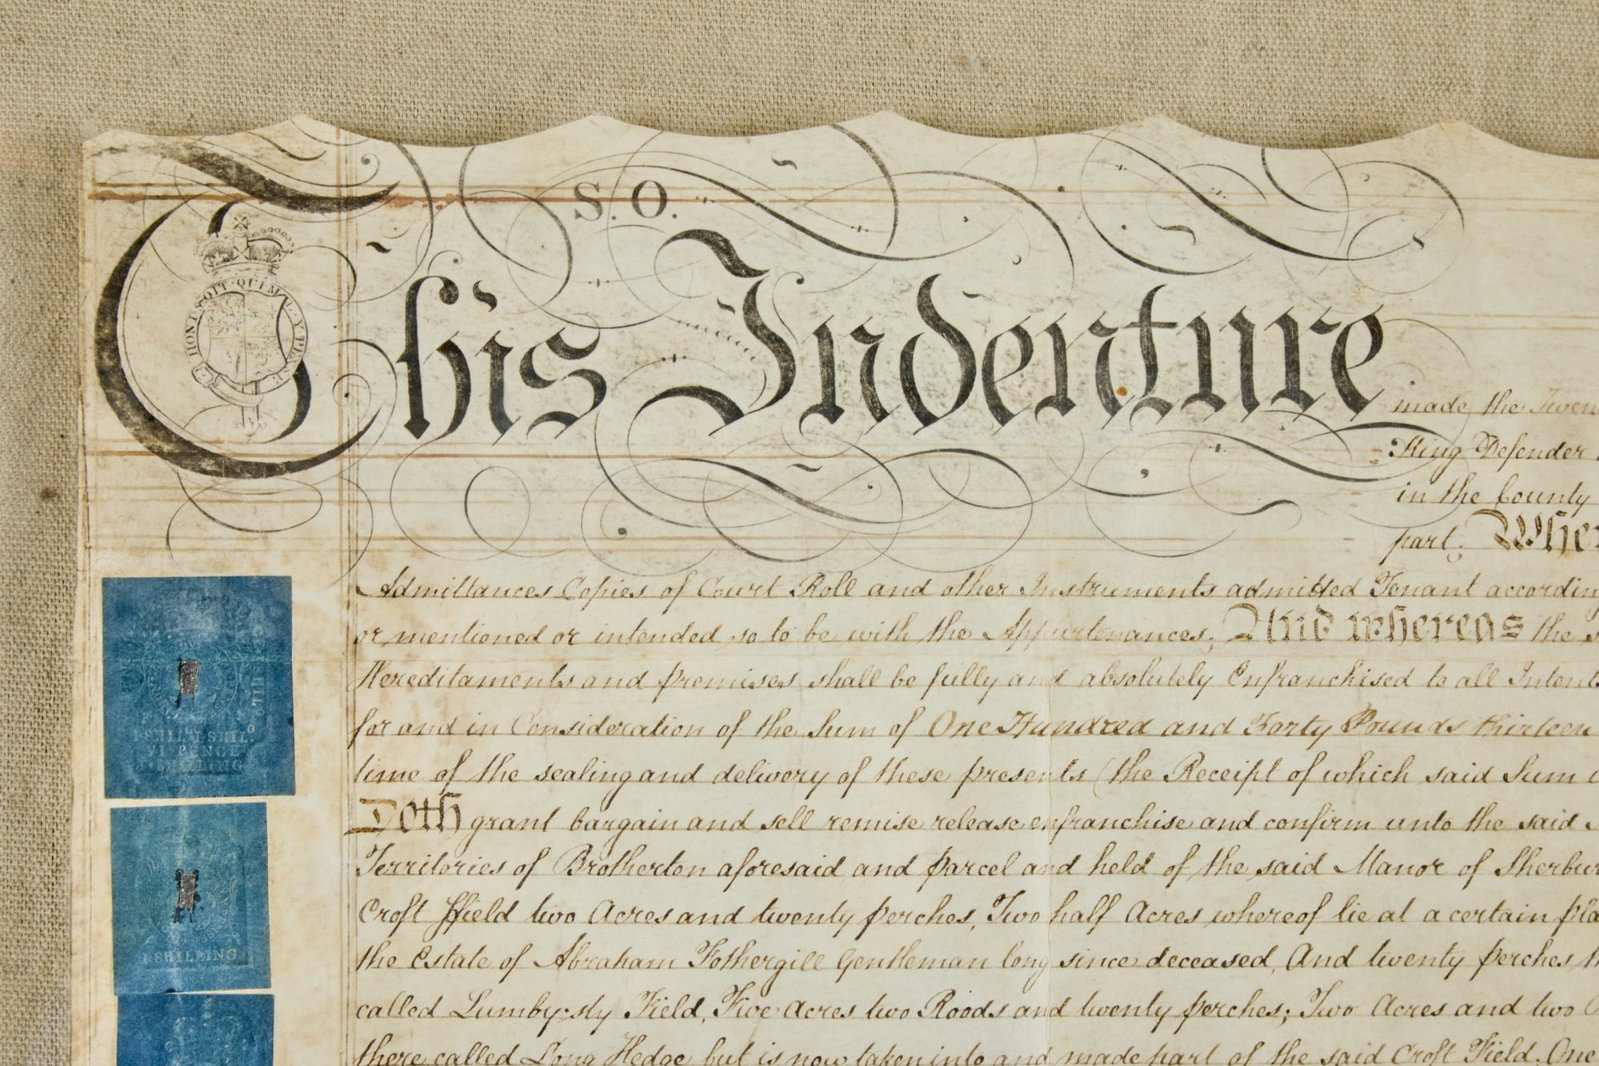 S. O.
HONI SOIT QUI MAL Y PENSE
This Indenture
made the Twen
King Defender
in the County
part; Wher
Admittances Copies of Court Roll and other Instruments admitted Tenant according
or mentioned or intended so to be with the Appurtenances; And whereas the s
Hereditaments and premises shall be fully and absolutely Enfranchised to all Intents
for and in Consideration of the Sum of One Hundred and Forty Pounds thirteen
time of the sealing and delivery of these presents (the Receipt of which said Sum
Doth grant bargain and sell remise release enfranchise and confirm unto the said
Territories of Brotherton aforesaid and parcel and held of the said Manor of Sherbur
Croft ffield two Acres and twenty perches, Two half Acres whereof lie at a certain pla
the Estate of Abraham Fothergill Gentleman long since deceased, And twenty perches
called Lumby-sty Field, Five Acres two Roods and twenty perches; Two Acres and two
there called Long Hedge but is now taken into and made part of the said Croft Field; One
I SHILL I SHIL
VI PENCE
I SHILLING
I SHILLING